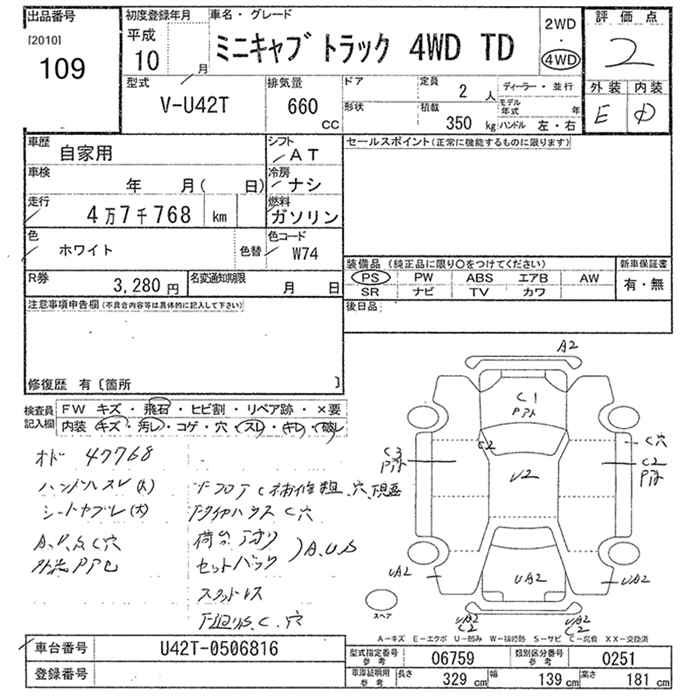 出品番号
[2010]
109
初度登録年月
平成
10 / 月
車名・グレード
ミニキャブ トラック 4WD TD
2WD
・
4WD
評価点
2
外装 内装
E D
型式
V-U42T
排気量
660
CC
ドア
形状
定員
2 人
積載
350 kg
ディーラー・並行
モデル年式 年
ハンドル 左・右
車歴
自家用
シフト
AT
車検
年 月( 日)
冷房
ナシ
走行
4万7千768 km
燃料
ガソリン
色
ホワイト
色替
色コード
W74
R券
3,280 円
名変通知期限
月 日
セールスポイント(正常に機能するものに限ります)
装備品(純正品に限り○をつけてください)
PS PW ABS エアB AW
SR ナビ TV カワ
新車保証書
有・無
後日品
注意事項申告欄(不具合内容等は具体的に記入して下さい)
修復歴 有〔箇所 〕
検査員
記入欄
FW キズ・飛石・ヒビ割・リペア跡・×要
内装 キズ・汚レ・コゲ・穴・スレ・キレ・破レ
オド 47768
ハンドルスレ(大)
シートヤブレ(大)
A.P.S C穴
下フロアC補修粗.穴.現品
下タイヤハウス C穴
荷台
セットバック
A.U.S
スタッドレス
下廻りC.穴
A2
C1
Pアト
C2
C3
Pアト
U2
C穴
C2
Pアト
UA2
UA2
UA2
UA2
C2
UA2
C2
スペア
A−キズ E−エクボ U−凹み W−補修跡 S−サビ C−腐食 XX−交換済
車台番号
U42T-0506816
登録番号
型式指定番号
参考
06759
類別区分番号
参考
0251
車庫証明用
参考
長さ
329 cm
幅
139 cm
高さ
181 cm